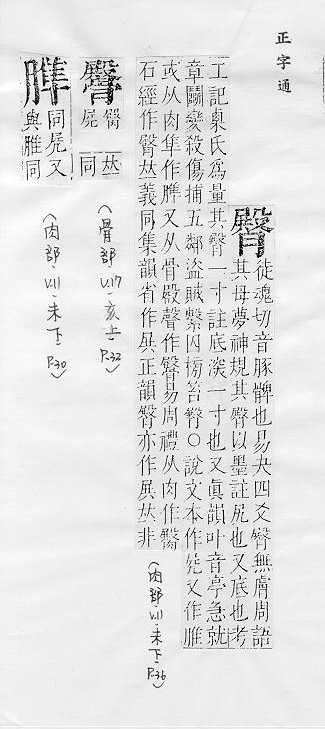 正字通
臀
徒魂切音豚髀也易夬四爻臀無膚周語
其母夢神規其臀以墨註尻也又底也考
工記㮚氏爲量其臀一寸註底深一寸也又眞韻叶音亭急就
章鬭變殺傷捕五鄰盜賊繫囚榜笞臀○說文本作又作脽
或从肉隼作又从骨殿聲作易周禮从肉作臋
石經作臀𠀤義同集韻省作正韻臀亦作𠀤非
(肉部.V.11.未下 P.36)
臋𠀤
同
(骨部.V.17.亥上 P.32)
同又
與脽同
(肉部.V.11.未下 P.30)